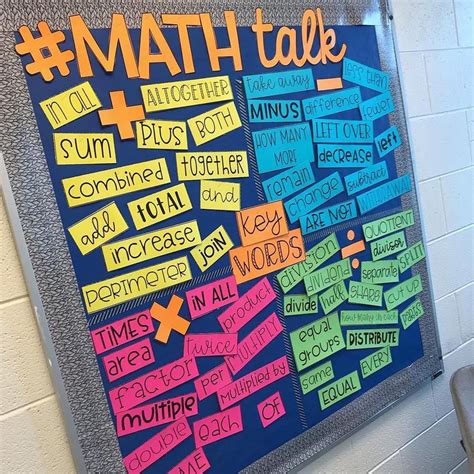 #MATH talk
+
in all
ALTOGETHER
sum
PLUS
BOTH
combined
together
add
total
and
increase
join
PERIMETER
−
take away
less than
MINUS
difference
fewer
HOW MANY MORE
LEFT OVER
left
decrease
remain
change
subtract
ARE NOT
key WORDS
×
TIMES
IN ALL
area
product
twice
factor
MULTIPLY
per
multiple
Multiplied by
double
each
OF
SAME
÷
division
QUOTIENT
dividend
divisor
separate
SPLIT
divide
half
SHARE
CUT UP
equal groups
how many in each
PARTS
DISTRIBUTE
same
EVERY
EQUAL